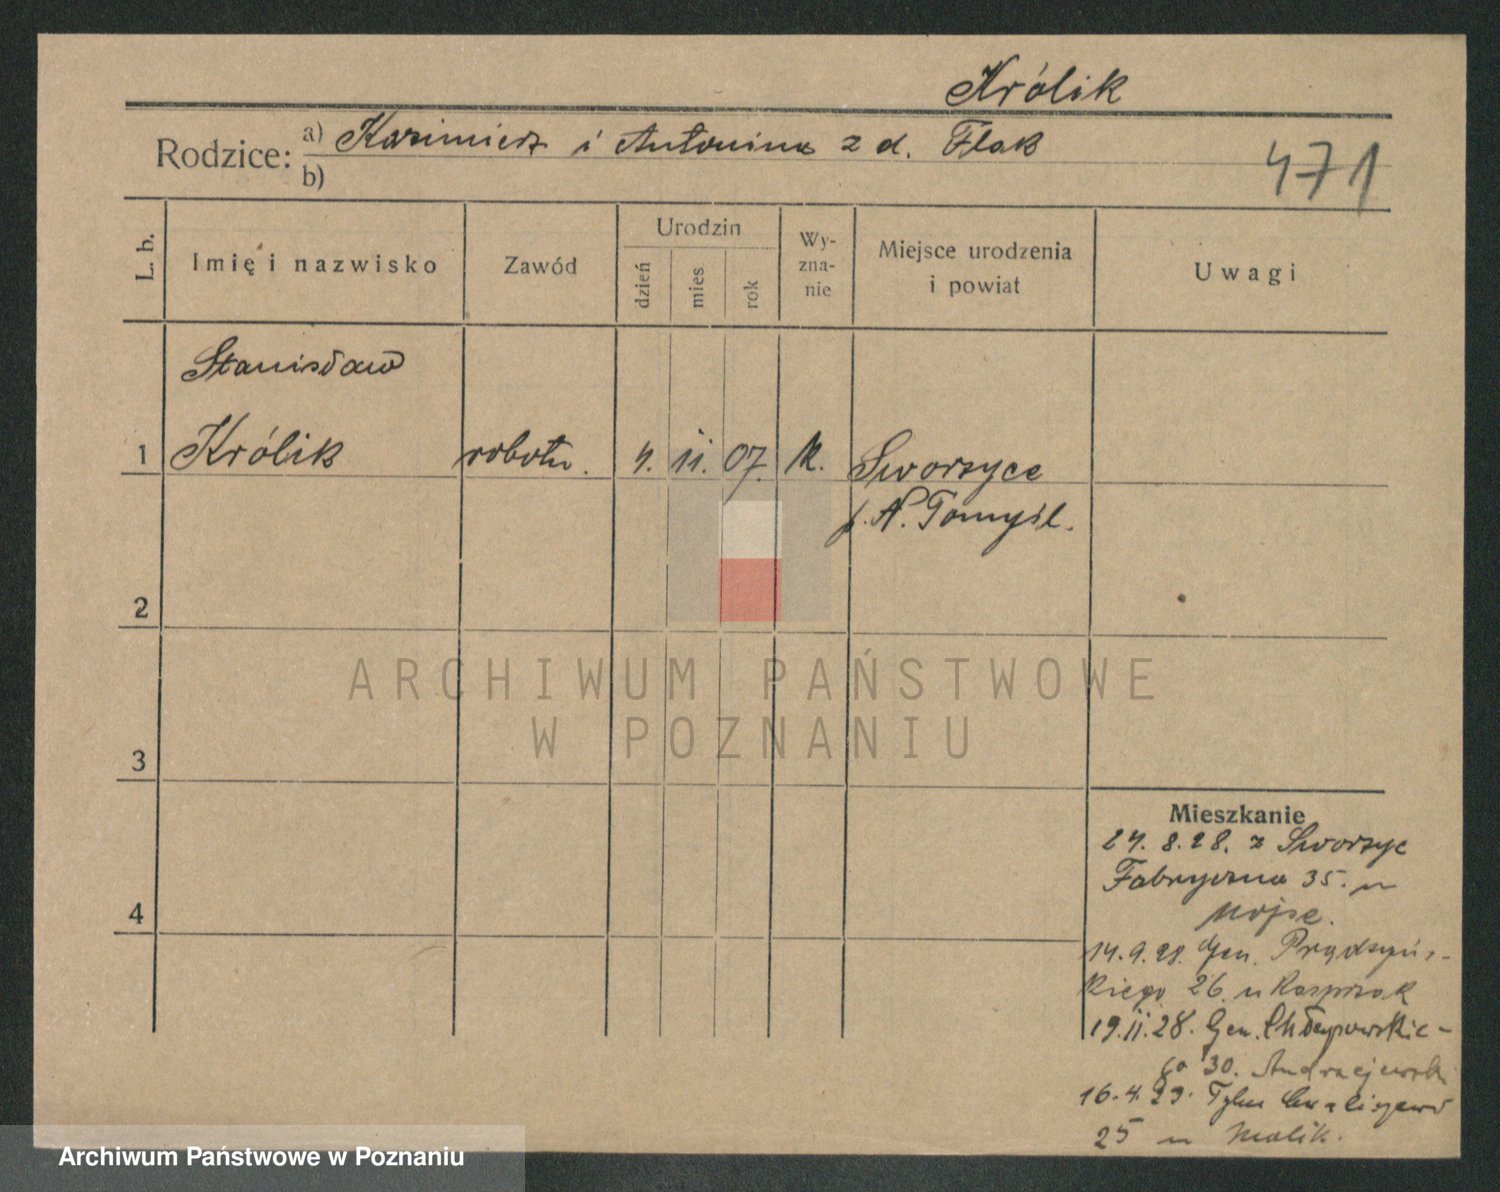 Królik
Rodzice: a) Kazimierz i Antonina z d. Flak
b)
471
L. b.
Imię i nazwisko
Zawód
Urodzin
dzień
mies
rok
Wy-
zna-
nie
Miejsce urodzenia
i powiat
Uwagi
Stanisław
1 Królik robotn. 4. 11. 07. k. Sworzyce
p. N. Tomyśl.
2
3
4
ARCHIWUM PAŃSTWOWE
W POZNANIU
Mieszkanie
24. 8. 28. z Sworzyc
Fabryczna 35. u
14. 9. 28. Gen. Prądzyńs-
kiego 26 u Kasprzak
19. 11. 28. Gen. Chłapowskie-
go 30. Andrzejewski
16. 4. 29. Tylne Chwaliszewo
25 u Malik.
Archiwum Państwowe w Poznaniu